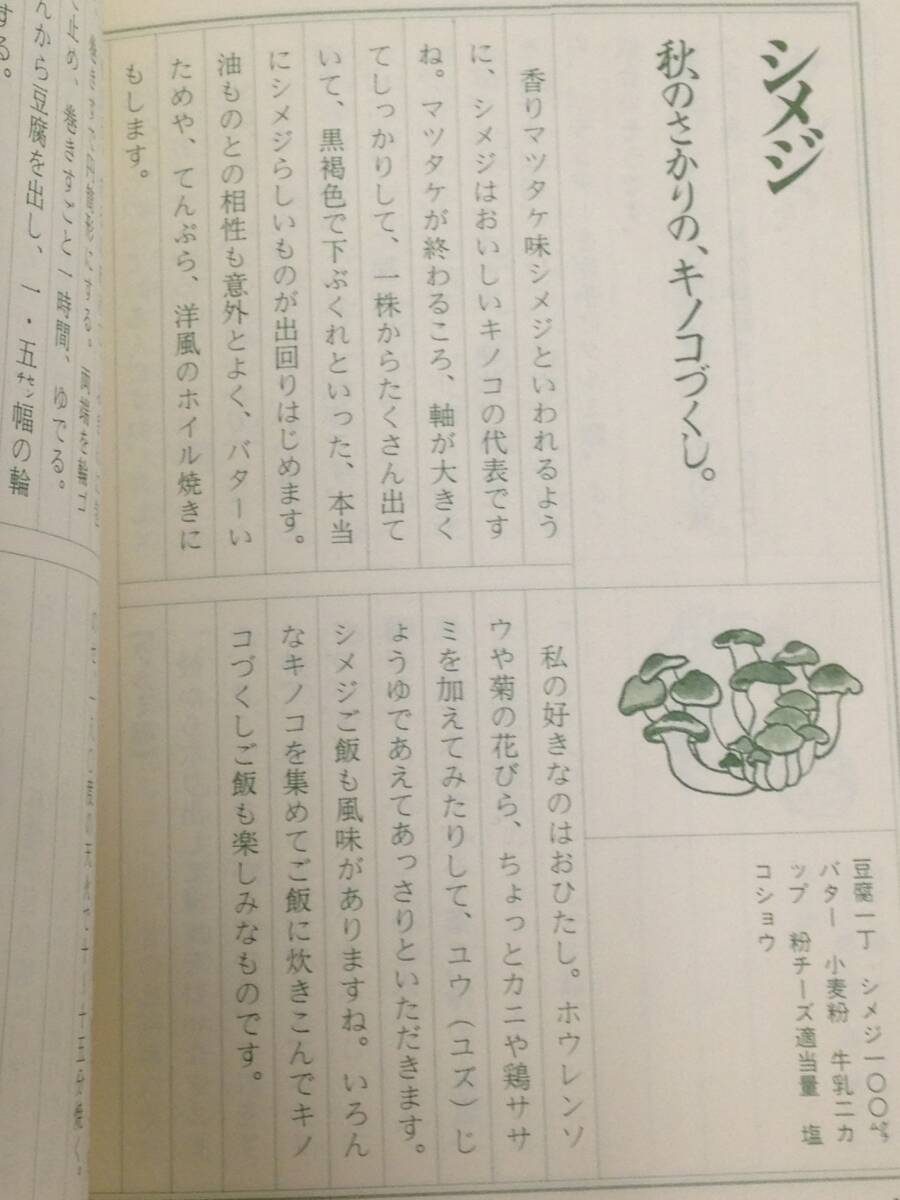 シメジ
秋のさかりの、キノコづくし。
香りマツタケ味シメジといわれるよう
に、シメジはおいしいキノコの代表です
ね。マツタケが終わるころ、軸が大きく
てしっかりして、一株からたくさん出て
いて、黒褐色で下ぶくれといった、本当
にシメジらしいものが出回りはじめます。
油ものとの相性も意外とよく、バターい
ためや、てんぷら、洋風のホイル焼きに
もします。
私の好きなのはおひたし。ホウレンソ
ウや菊の花びら、ちょっとカニや鶏ササ
ミを加えてみたりして、ユウ（ユズ）じ
ょうゆであえてあっさりといただきます。
シメジご飯も風味がありますね。いろん
なキノコを集めてご飯に炊きこんでキノ
コづくしご飯も楽しみなものです。
豆腐一丁　シメジ一〇〇㌘
バター　小麦粉　牛乳二カ
ップ　粉チーズ適当量　塩
コショウ
止め、巻きすごと一時間、ゆでる。
んから豆腐を出し、一・五㌢幅の輪
する。